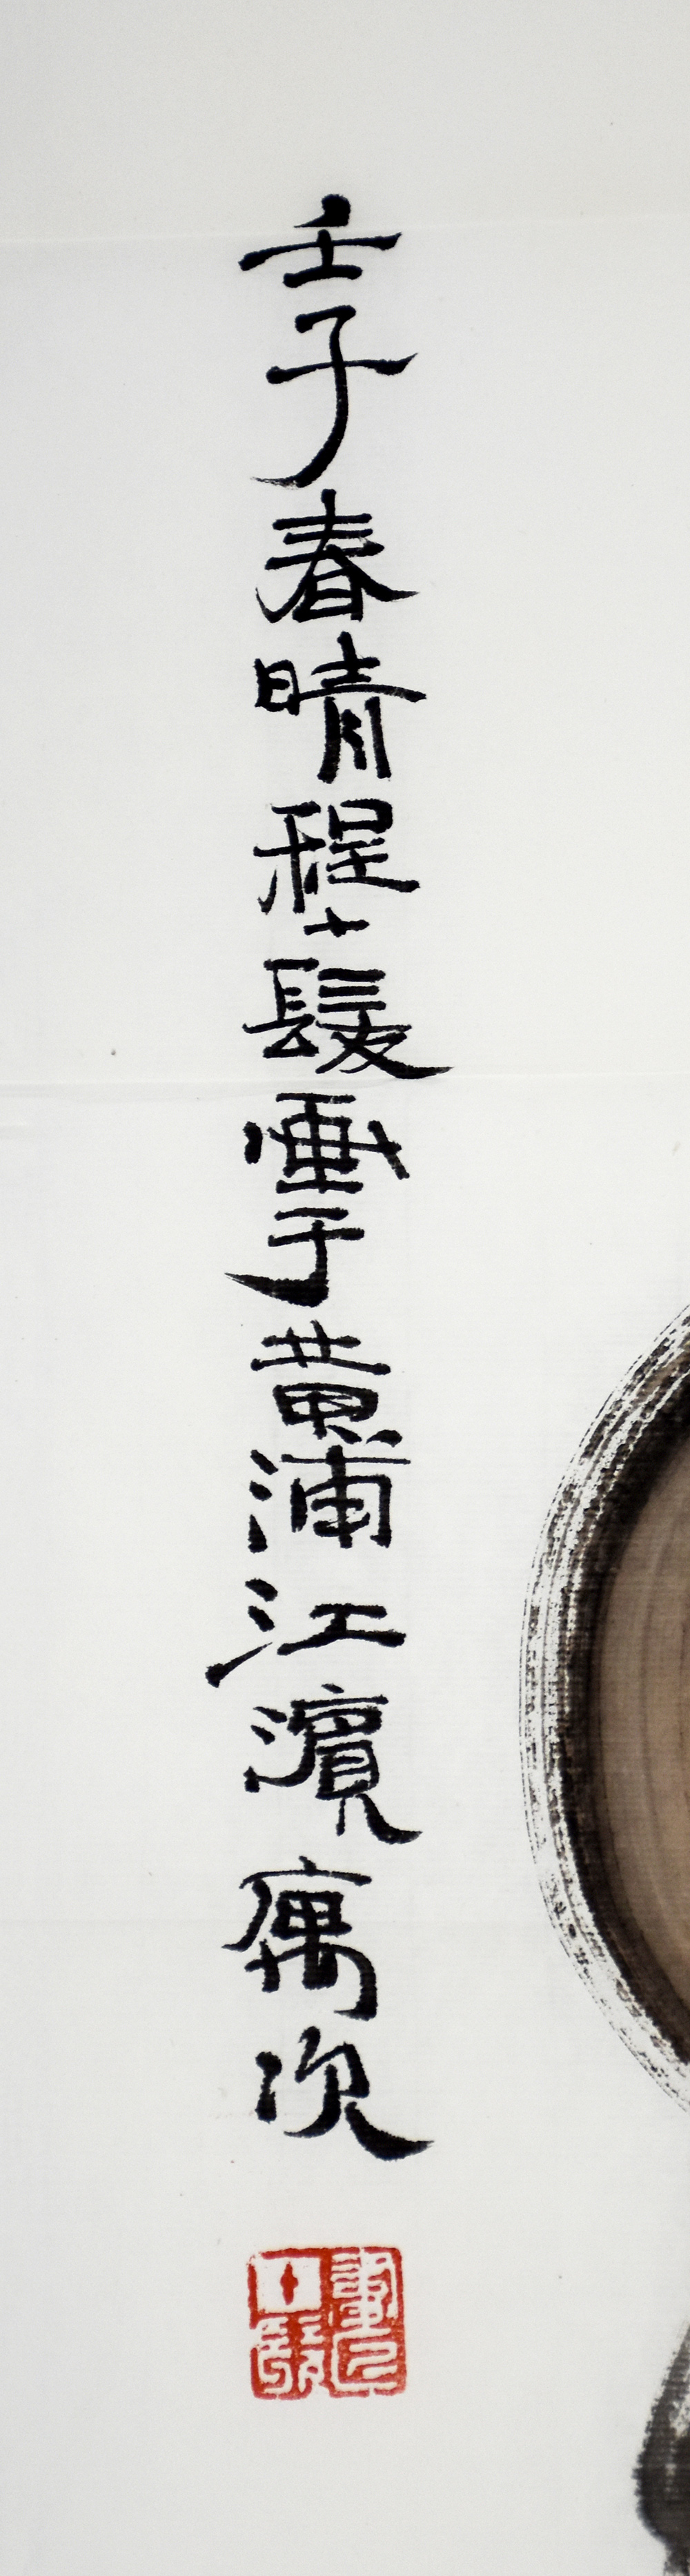 壬子春晴程十髮畫于黃浦江濱寓次
十髮